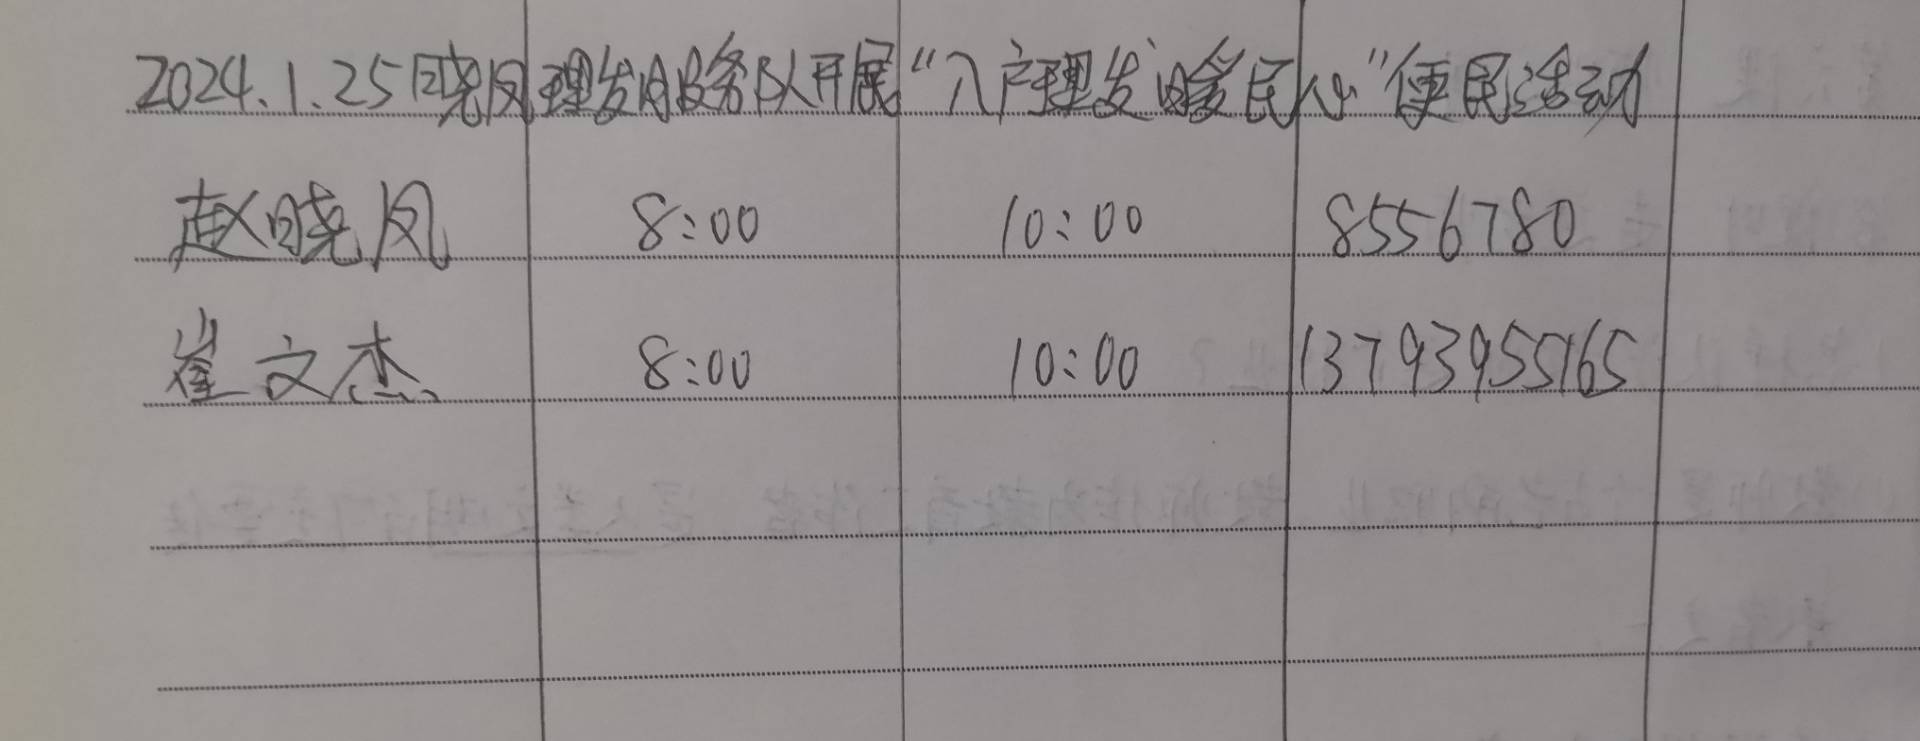 2024.1.25日晓凤理发服务队开展“入户理发暖民心”便民活动
赵晓凤 8:00 10:00 8556780
崔文杰 8:00 10:00 13793955165